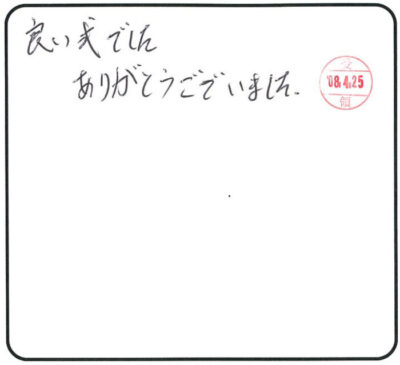 良い式でした
ありがとうございました.
受
'08.4.25
領